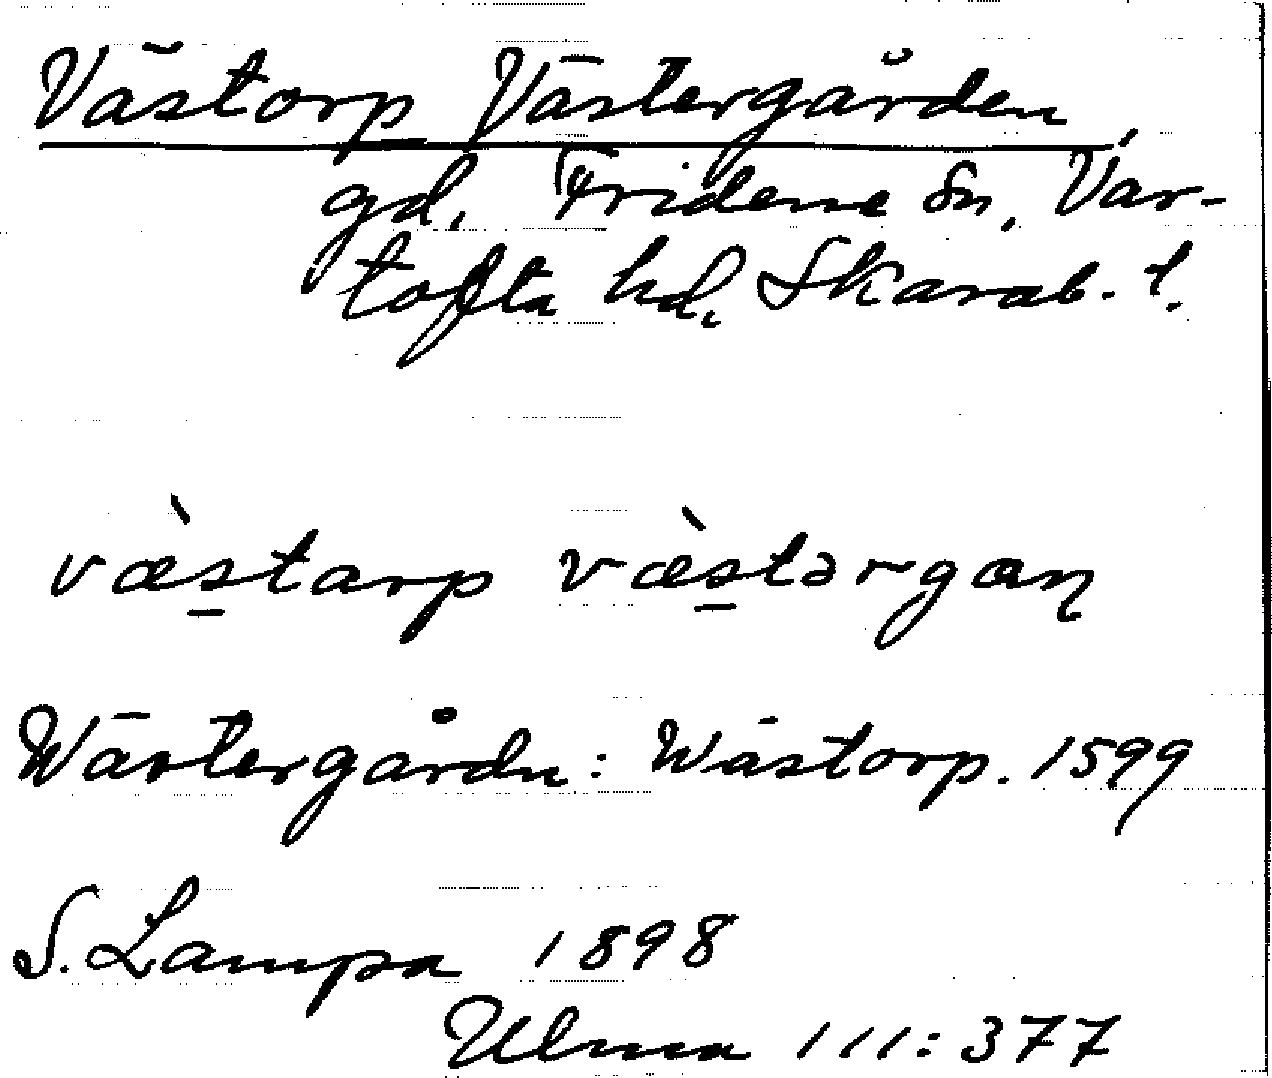 Västorp Västergården,
gd, Fridene sn, Var-
tofta hd, Skarab. l.
væ̀starp væ̀stərgaɳ
Wästergårdn: Wästorp. 1599
S. Lampa 1898
Ulma 111:377